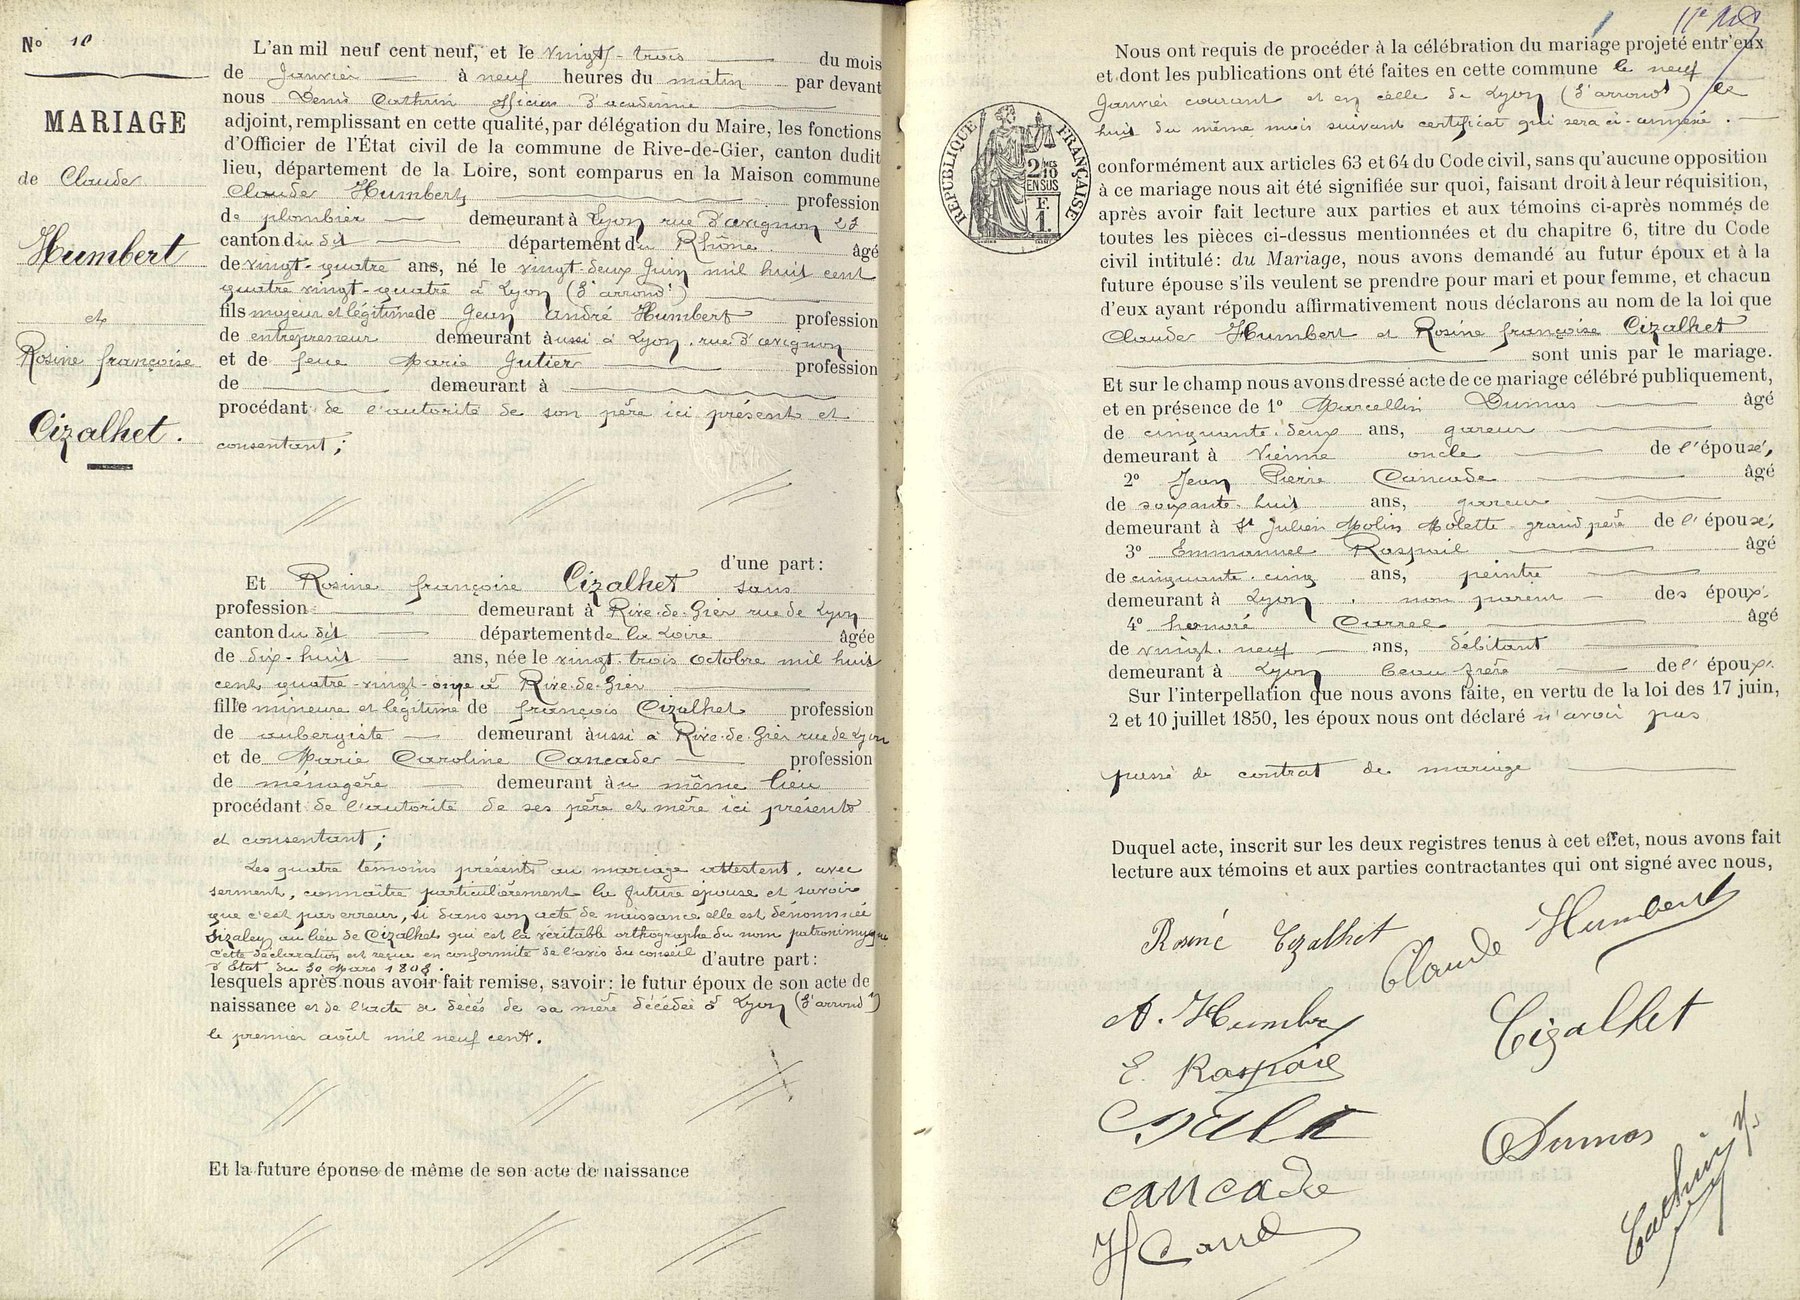 N° 10
MARIAGE
de Claude
Humbert
et
Rosine françoise
Cizalhet.
L'an mil neuf cent neuf, et le vingt-trois du mois
de Janvier à neuf heures du matin par devant
nous Denis Cathrin officier d'académie
adjoint, remplissant en cette qualité, par délégation du Maire, les fonctions
d'Officier de l'État civil de la commune de Rive-de-Gier, canton dudit
lieu, département de la Loire, sont comparus en la Maison commune
Claude Humbert profession
de plombier demeurant à Lyon rue d'avignon 23
canton du dit département du Rhône âgé
de vingt-quatre ans, né le vingt-deux Juin mil huit cent
quatre vingt-quatre à Lyon (3e arrondt)
fils majeur et légitime de Jean André Humbert profession
de entrepreneur demeurant aussi à Lyon, rue d'avignon
et de feue Marie Jutier profession
de demeurant à
procédant de l'autorité de son père ici présent et
consentant;
d'une part:
Et Rosine françoise Cizalhet sans
profession demeurant à Rive-de-Gier rue de Lyon
canton du dit département de la Loire âgée
de dix-huit ans, née le vingt-trois octobre mil huit
cent quatre-vingt-onze à Rive-de-Gier
fille mineure et légitime de françois Cizalhet profession
de aubergiste demeurant aussi à Rive-de-Gier rue de Lyon
et de Marie Caroline Cancade profession
de ménagère demeurant au même lieu
procédant de l'autorité de ses père et mère ici présents
et consentant;
Les quatre témoins présents au mariage attestent, avec
serment, connaître particulièrement la future épouse et savoir
que c'est par erreur, si dans son acte de naissance elle est dénommée
Sizaley au lieu de Cizalhet qui est la véritable orthographe du nom patronimyque
Cette déclaration est reçue en conformité de l'avis du conseil d'autre part:
d'Etat du 30 Mars 1808.
lesquels après nous avoir fait remise, savoir: le futur époux de son acte de
naissance et de l'acte de décès de sa mère décédée à Lyon (3e arrondt)
le premier août mil neuf cent.
Et la future épouse de même de son acte de naissance
Nous ont requis de procéder à la célébration du mariage projeté entr'eux
et dont les publications ont été faites en cette commune le neuf
Janvier courant et en celle de Lyon (3e arrondt) le
huit du même mois suivant certificat qui sera ci-annexé.
RÉPUBLIQUE FRANÇAISE
2/10 EN SUS
F. 1.
conformément aux articles 63 et 64 du Code civil, sans qu'aucune opposition
à ce mariage nous ait été signifiée sur quoi, faisant droit à leur réquisition,
après avoir fait lecture aux parties et aux témoins ci-après nommés de
toutes les pièces ci-dessus mentionnées et du chapitre 6, titre du Code
civil intitulé: du Mariage, nous avons demandé au futur époux et à la
future épouse s'ils veulent se prendre pour mari et pour femme, et chacun
d'eux ayant répondu affirmativement nous déclarons au nom de la loi que
Claude Humbert et Rosine françoise Cizalhet
sont unis par le mariage.
Et sur le champ nous avons dressé acte de ce mariage célébré publiquement,
et en présence de 1° Marcellin Dumas âgé
de cinquante-deux ans, gareur
demeurant à Vienne oncle de l'épouse,
2° Jean Pierre Cancade âgé
de soixante-huit ans, gareur
demeurant à St Julien Molin Molette grand père de l'épouse,
3° Emmanuel Raspail âgé
de cinquante-cinq ans, peintre
demeurant à Lyon, non parent des époux.
4° honoré Carrel âgé
de vingt-neuf ans, débitant
demeurant à Lyon beau frère de l'époux.
Sur l'interpellation que nous avons faite, en vertu de la loi des 17 juin,
2 et 10 juillet 1850, les époux nous ont déclaré n'avoir pas
passé de contrat de mariage
Duquel acte, inscrit sur les deux registres tenus à cet effet, nous avons fait
lecture aux témoins et aux parties contractantes qui ont signé avec nous,
Rosine Cizalhet
Claude Humbert
A. Humbert
Cizalhet
E. Raspail
Dumas
Cancade
H Carrel
Cathrin